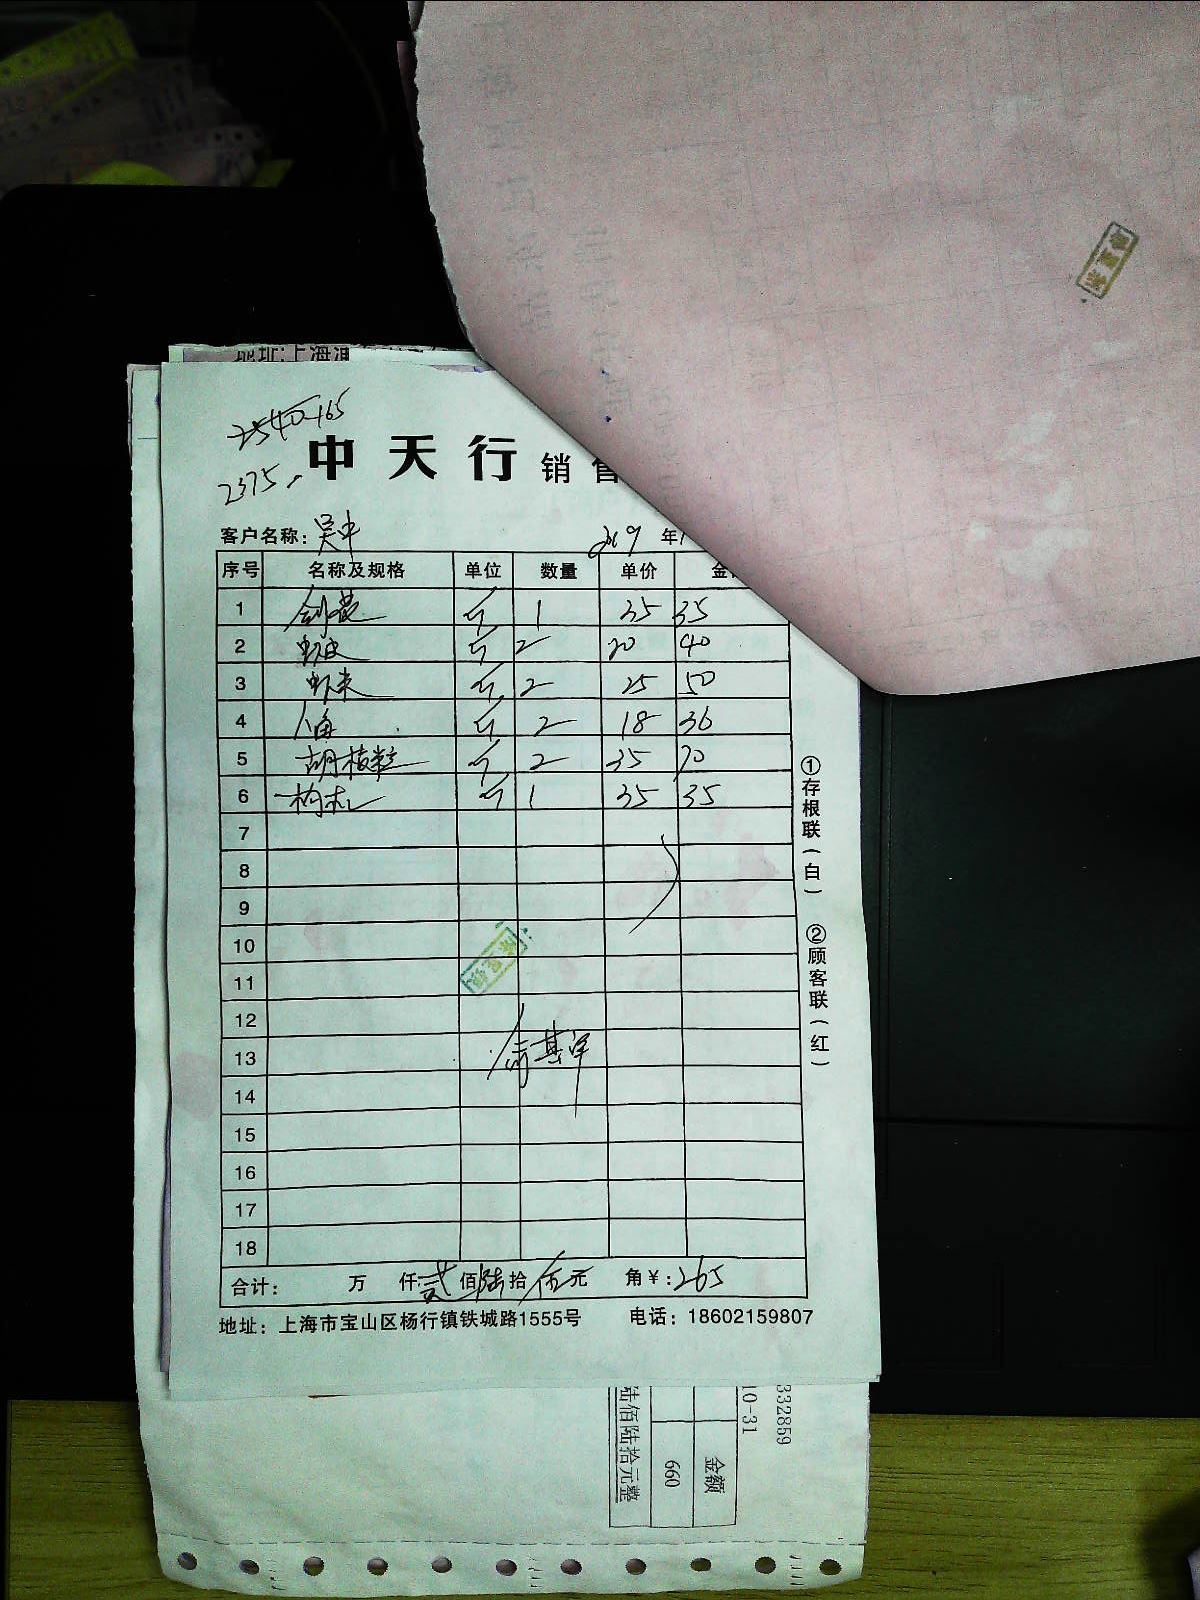 地址:上海
2540-165
2375
中天行 销售
客户名称: 吴中 2019 年
序号 名称及规格 单位 数量 单价 金
1 斤 1 35 35
2 虾皮 斤 2 20 40
3 虾米 斤 2 25 50
4 八角 斤 2 18 36
5 胡椒粒 斤 2 35 70
6 枸杞 斤 1 35 35
7
8
9
10
11
12
13
14
15
16
17
18
合计: 万 仟 贰 佰 陆 拾 伍 元 角 ¥: 265
地址: 上海市宝山区杨行镇铁城路1555号 电话: 18602159807
①存根联(白) ②顾客联(红)
332859
10-31
金额
660
陆佰陆拾元整